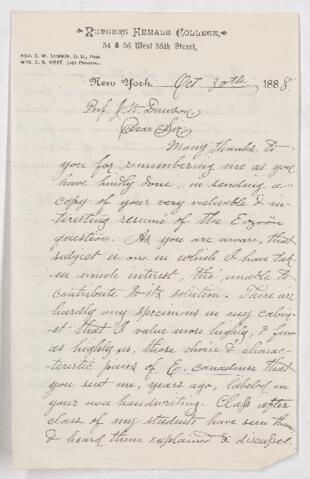 Rutgers Female College,
54 & 56 West 55th Street,
Rev. G. W. Samson, D. D., Pres.
Mrs. C. S. West, Lady Principal.
New York. Oct. 30th 1888
Prof. J. W. Dawson,
Dear Sir,
Many thanks to
you for remembering me as you
have kindly done, in sending a
copy of your very valuable & in-
teresting resumé of the Eozoön
question. As you are aware, that
subject is one in which I have tak-
en much interest, tho' unable to
contribute to its solution. There are
hardly any specimens in my cabin-
et that I value more highly, & few
as highly as, those choice & charac-
teristic pieces of E. canadense that
you sent me, years ago, labeled in
your own handwriting. Class after
class of my students have seen them,
& heard them explained & discussed.